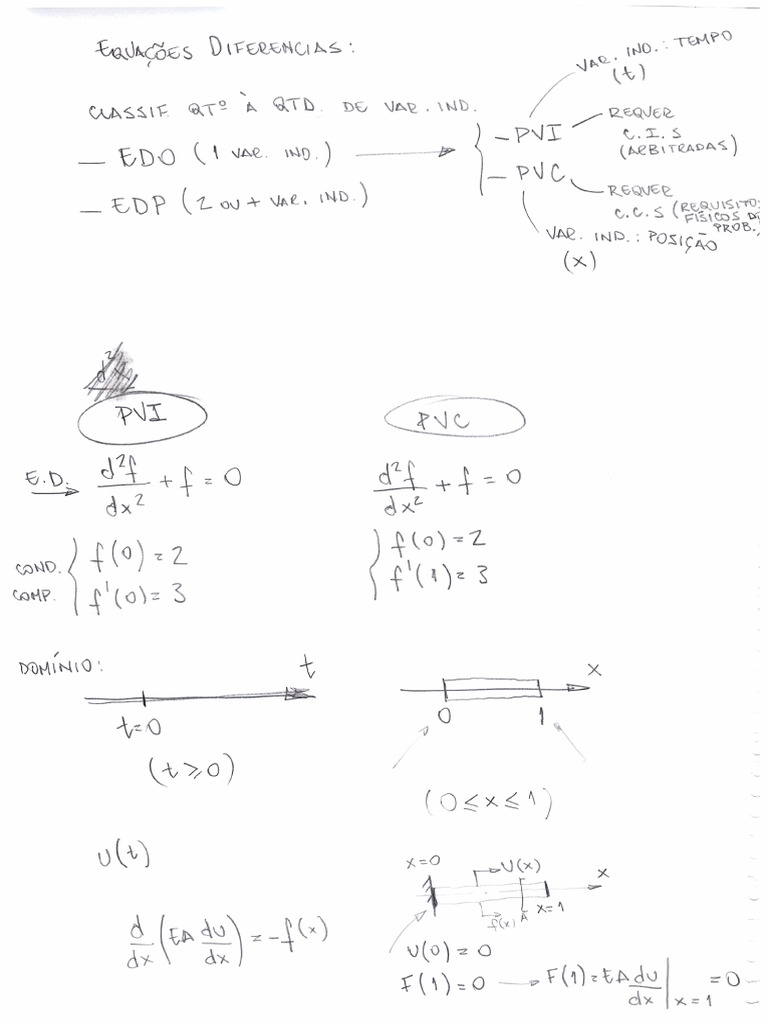 EQUAÇÕES DIFERENCIAS:
CLASSIF. QTº À QTD. DE VAR. IND.
— EDO (1 VAR. IND.)
— EDP (2 OU + VAR. IND.)
VAR. IND.: TEMPO
(t)
– PVI
REQUER
C.I.S
(ARBITRADAS)
– PVC
REQUER
C.C.S (REQUISITOS
FÍSICOS
PROB.)
VAR. IND.: POSIÇÃO
(x)
PVI
E.D. d²f/dx² + f = 0
COND.
COMP.
f(0) = 2
f'(0) = 3
PVC
d²f/dx² + f = 0
f(0) = 2
f'(1) = 3
DOMÍNIO:
t
t=0
(t ≥ 0)
x
0 1
(0 ≤ x ≤ 1)
U(t)
d/dx (EA du/dx) = -f(x)
x=0
U(x)
x
f(x) A x=1
U(0) = 0
F(1) = 0 → F(1) = EA du/dx | x=1 = 0